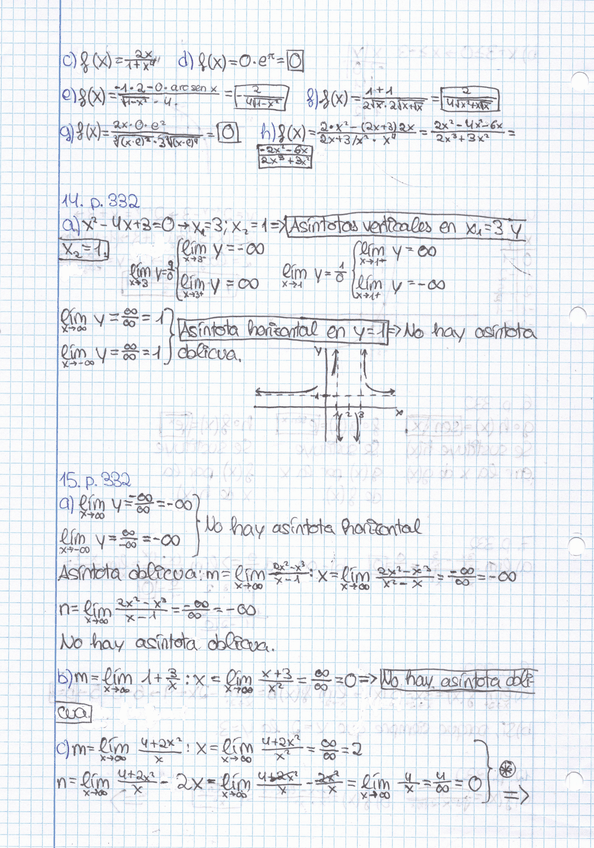 c) f(x) = 2x/1+x⁴ d) f(x) = 0 · e^π = 0
e) f(x) = -1·2-0·arc sen x/√1-x² · 4 = -2/4√1-x² f) f(x) = 1+1/2√x · 2√x+√x = 2/4√x²+x√x
g) f(x) = 2x·0·e²/∛(x·e)² · 3∛(x·e)² = 0 h) f(x) = 2·x²-(2x+3)2x/2x+3/x² · x⁴ = 2x²-4x²-6x/2x³+3x² =
-2x²-6x/2x³+3x²
14. p. 332
a) x²-4x+3=0 → x₁=3; x₂=1 ⇒ Asíntotas verticales en x₁=3 y
x₂=1.
lím x→3 y = 9/0 { lím x→3⁻ y = -∞ lím x→3⁺ y = ∞ lím x→1 y = 1/0 { lím x→1⁺ y = ∞ lím x→1⁺ y = -∞
lím x→∞ y = ∞/∞ = 1 } Asíntota horizontal en y=1 ⇒ No hay asíntota
lím x→-∞ y = ∞/∞ = 1 } oblicua.
y
1
1 2 3
x
15. p. 332
a) lím x→∞ y = -∞/∞ = -∞
lím x→-∞ y = ∞/-∞ = -∞ } No hay asíntota horizontal
Asíntota oblicua: m = lím x→∞ 2x²-x³/x-1 : x = lím x→∞ 2x²-x³/x²-x = -∞/∞ = -∞
n = lím x→∞ 2x²-x³/x-1 = -∞/∞ = -∞
No hay asíntota oblicua.
b) m = lím x→∞ 1+3/x : x = lím x→∞ x+3/x² = ∞/∞ = 0 ⇒ No hay asíntota obli
cua
c) m = lím x→∞ 4+2x²/x : x = lím x→∞ 4+2x²/x² = ∞/∞ = 2
n = lím x→∞ 4+2x²/x - 2x = lím x→∞ 4+2x²/x - 2x²/x = lím x→∞ 4/x = 4/∞ = 0 } ⊛ ⇒